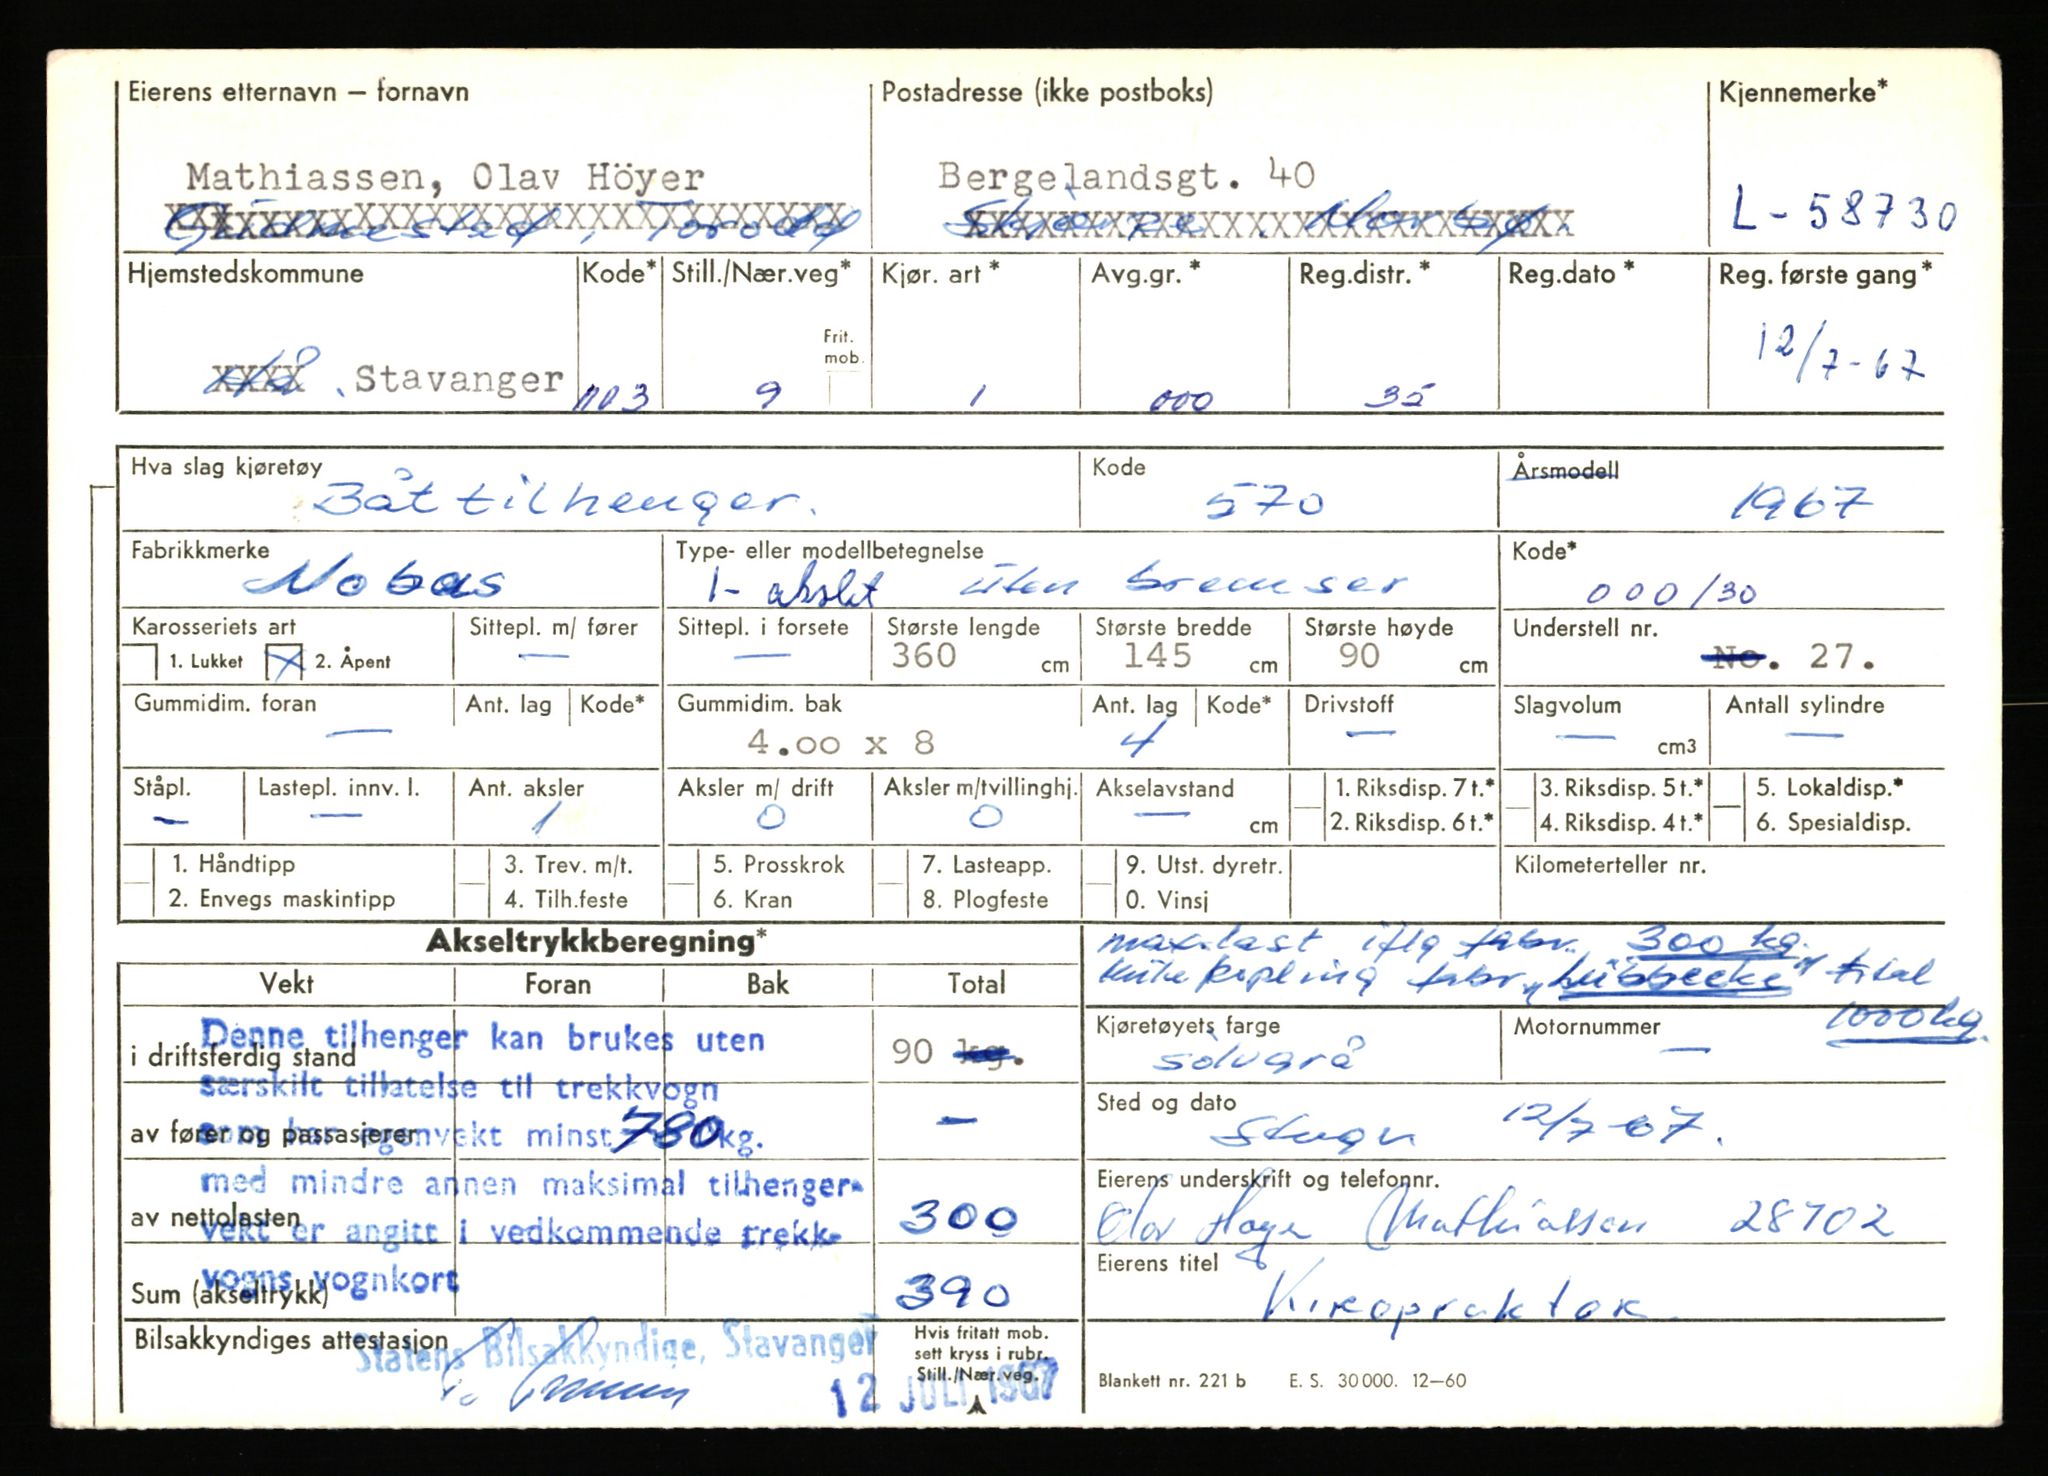 Eierens etternavn – fornavn Postadresse (ikke postboks) Kjennemerke*
Mathiassen, Olav Höyer Bergelandsgt. 40
XXXXXXXXXXXXXXXXXXXXXXXX XXXXXXXXXXXXXXXXXXXXXXXX L-58730
Hjemstedskommune Kode* Still./Nær.veg* Kjør. art* Avg.gr.* Reg.distr.* Reg.dato* Reg. første gang*
Frit.
mob.
12/7-67
XXXX Stavanger 1103 9 1 000 35
Hva slag kjøretøy Kode Årsmodell
Båttilhenger. 570 1967
Fabrikkmerke Type- eller modellbetegnelse Kode*
Nobas 1- akslet uten bremser 000/30
Karosseriets art Sittepl. m/ fører Sittepl. i forsete Største lengde Største bredde Største høyde Understell nr.
1. Lukket X 2. Åpent — — 360 cm 145 cm 90 cm No. 27.
Gummidim. foran Ant. lag Kode* Gummidim. bak Ant. lag Kode* Drivstoff Slagvolum Antall sylindre
— 4.00 x 8 4 — — cm3 —
Ståpl. Lastepl. innv. l. Ant. aksler Aksler m/ drift Aksler m/tvillinghj. Akselavstand 1. Riksdisp. 7 t.* 3. Riksdisp. 5 t.* 5. Lokaldisp.*
— — 1 0 0 — cm 2. Riksdisp. 6 t.* 4. Riksdisp. 4 t.* 6. Spesialdisp.
1. Håndtipp 3. Trev. m/t. 5. Prosskrok 7. Lasteapp. 9. Utst. dyretr. Kilometerteller nr.
2. Envegs maskintipp 4. Tilh.feste 6. Kran 8. Plogfeste 0. Vinsj
Akseltrykkberegning*
max.last iflg fabr. 300 kg.
kule kopling fabr. Lübbecke tilal
1000 kg.
Vekt Foran Bak Total
Denne tilhenger kan brukes uten
i driftsferdig stand 90 kg.
særskilt tillatelse til trekkvogn
som har egenvekt minst 780 kg.
av fører og passasjerer —
med mindre annen maksimal tilhenger-
av nettolasten 300
vekt er angitt i vedkommende trekk-
vogns vognkort
Sum (akseltrykk) 390
Kjøretøyets farge Motornummer
sölvgrå —
Sted og dato
Stvgr 12/7-67.
Eierens underskrift og telefonnr.
Olav Høyer Mathiassen 28702
Eierens titel
Kiropraktor
Bilsakkyndiges attestasjon
Statens Bilsakkyndige, Stavanger
12 JULI 1967
Hvis fritatt mob.
sett kryss i rubr.
Still./Nær.veg.
Blankett nr. 221 b E. S. 30 000. 12–60